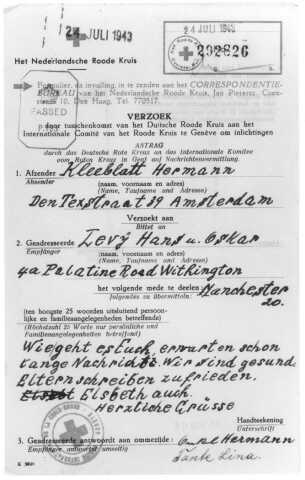 24 JULI 1943
24 JULI 1943
202826
Het Nederlandsche Roode Kruis
Formulier, na invulling, in te zenden aan het CORRESPONDENTIE-
BUREAU van het Nederlandsche Roode Kruis, Jan Pietersz. Coen-
straat 10, Den Haag, Tel. 770517.
PASSED
VERZOEK
door tusschenkomst van het Duitsche Roode Kruis aan het
Internationale Comité van het Roode Kruis te Genève om inlichtingen
ANTRAG
durch das Deutsche Rote Kreuz an das Internationale Komitee
vom Roten Kreuz in Genf auf Nachrichtenvermittlung.
1. Afzender Kleeblatt Hermann
Absender (naam, voornaam en adres)
(Name, Taufname und Adresse)
Den Texstraat 39 Amsterdam
Verzoekt aan
Bittet an
2. Geadresseerde Levy Hans u. Oskar
Empfänger (naam, voornaam en adres)
(Name, Taufname und Adresse)
4a Palatine Road Withington
het volgende mede te deelen Manchester
folgendes zu übermitteln: 20.
(ten hoogste 25 woorden uitsluitend persoon-
lijke en familieaangelegenheden betreffende)
(Höchstzahl 25 Worte nur persönliche und
Familienangelegenheiten betreffend)
Wie geht es Euch, erwarten schon
lange Nachricht. Wir sind gesund.
Eltern schreiben zufrieden.
Elsbeth auch.
Herzliche Grüsse
Handteekening
Unterschrift
Hermann
Tante Lina.
3. Geadresseerde antwoordt aan ommezijde:
Empfänger antwortet umseitig